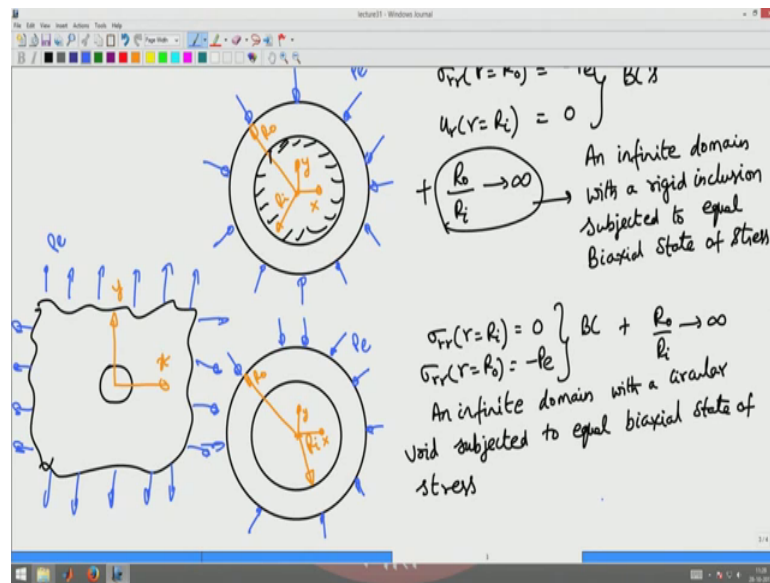 lecture31 - Windows Journal
File Edit View Insert Actions Tools Help
Page Width
B I
Pe
Pe
σrr(r=Ro) = -Pe } BC's
ur(r=Ri) = 0
+ Ro/Ri → ∞
An infinite domain
with a rigid inclusion
subjected to equal
Biaxial state of stress
Ro
y
x
Ri
Pe
y
x
Pe
Ro
y
Ri x
σrr(r=Ri) = 0 } BC + Ro/Ri → ∞
σrr(r=Ro) = -Pe
An infinite domain with a circular
void subjected to equal biaxial state of
stress